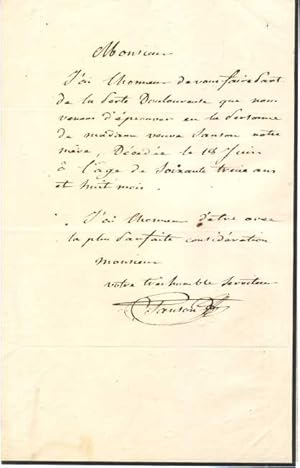 Monsieur
J'ai l'honneur de vous faire part
de la perte Douloureuse que nous
venons d'éprouver en la personne
de madame veuve Sanson notre
mère, Décédée le 18 Juin
à l'âge de Soixante treize ans
et huit mois.
J'ai l'honneur d'être avec
la plus parfaite considération
Monsieur
votre très humble Serviteur
Sanson